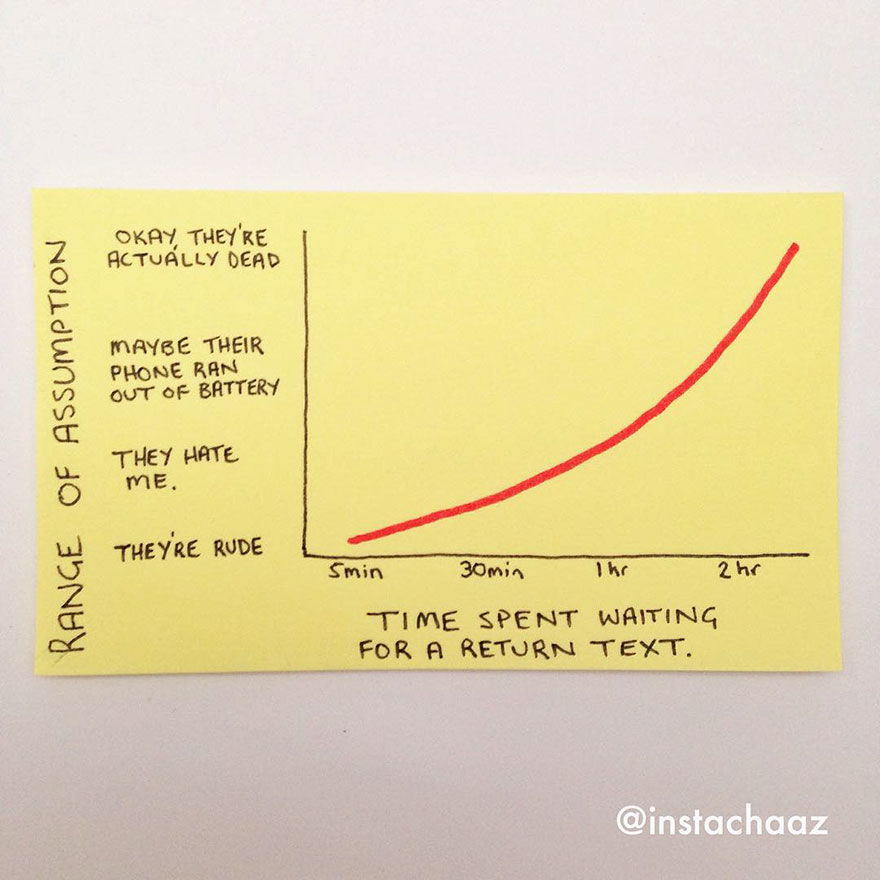 RANGE OF ASSUMPTION
OKAY, THEY'RE
ACTUALLY DEAD
MAYBE THEIR
PHONE RAN
OUT OF BATTERY
THEY HATE
ME.
THEY'RE RUDE
5min 30min 1hr 2hr
TIME SPENT WAITING
FOR A RETURN TEXT.
@instachaaz